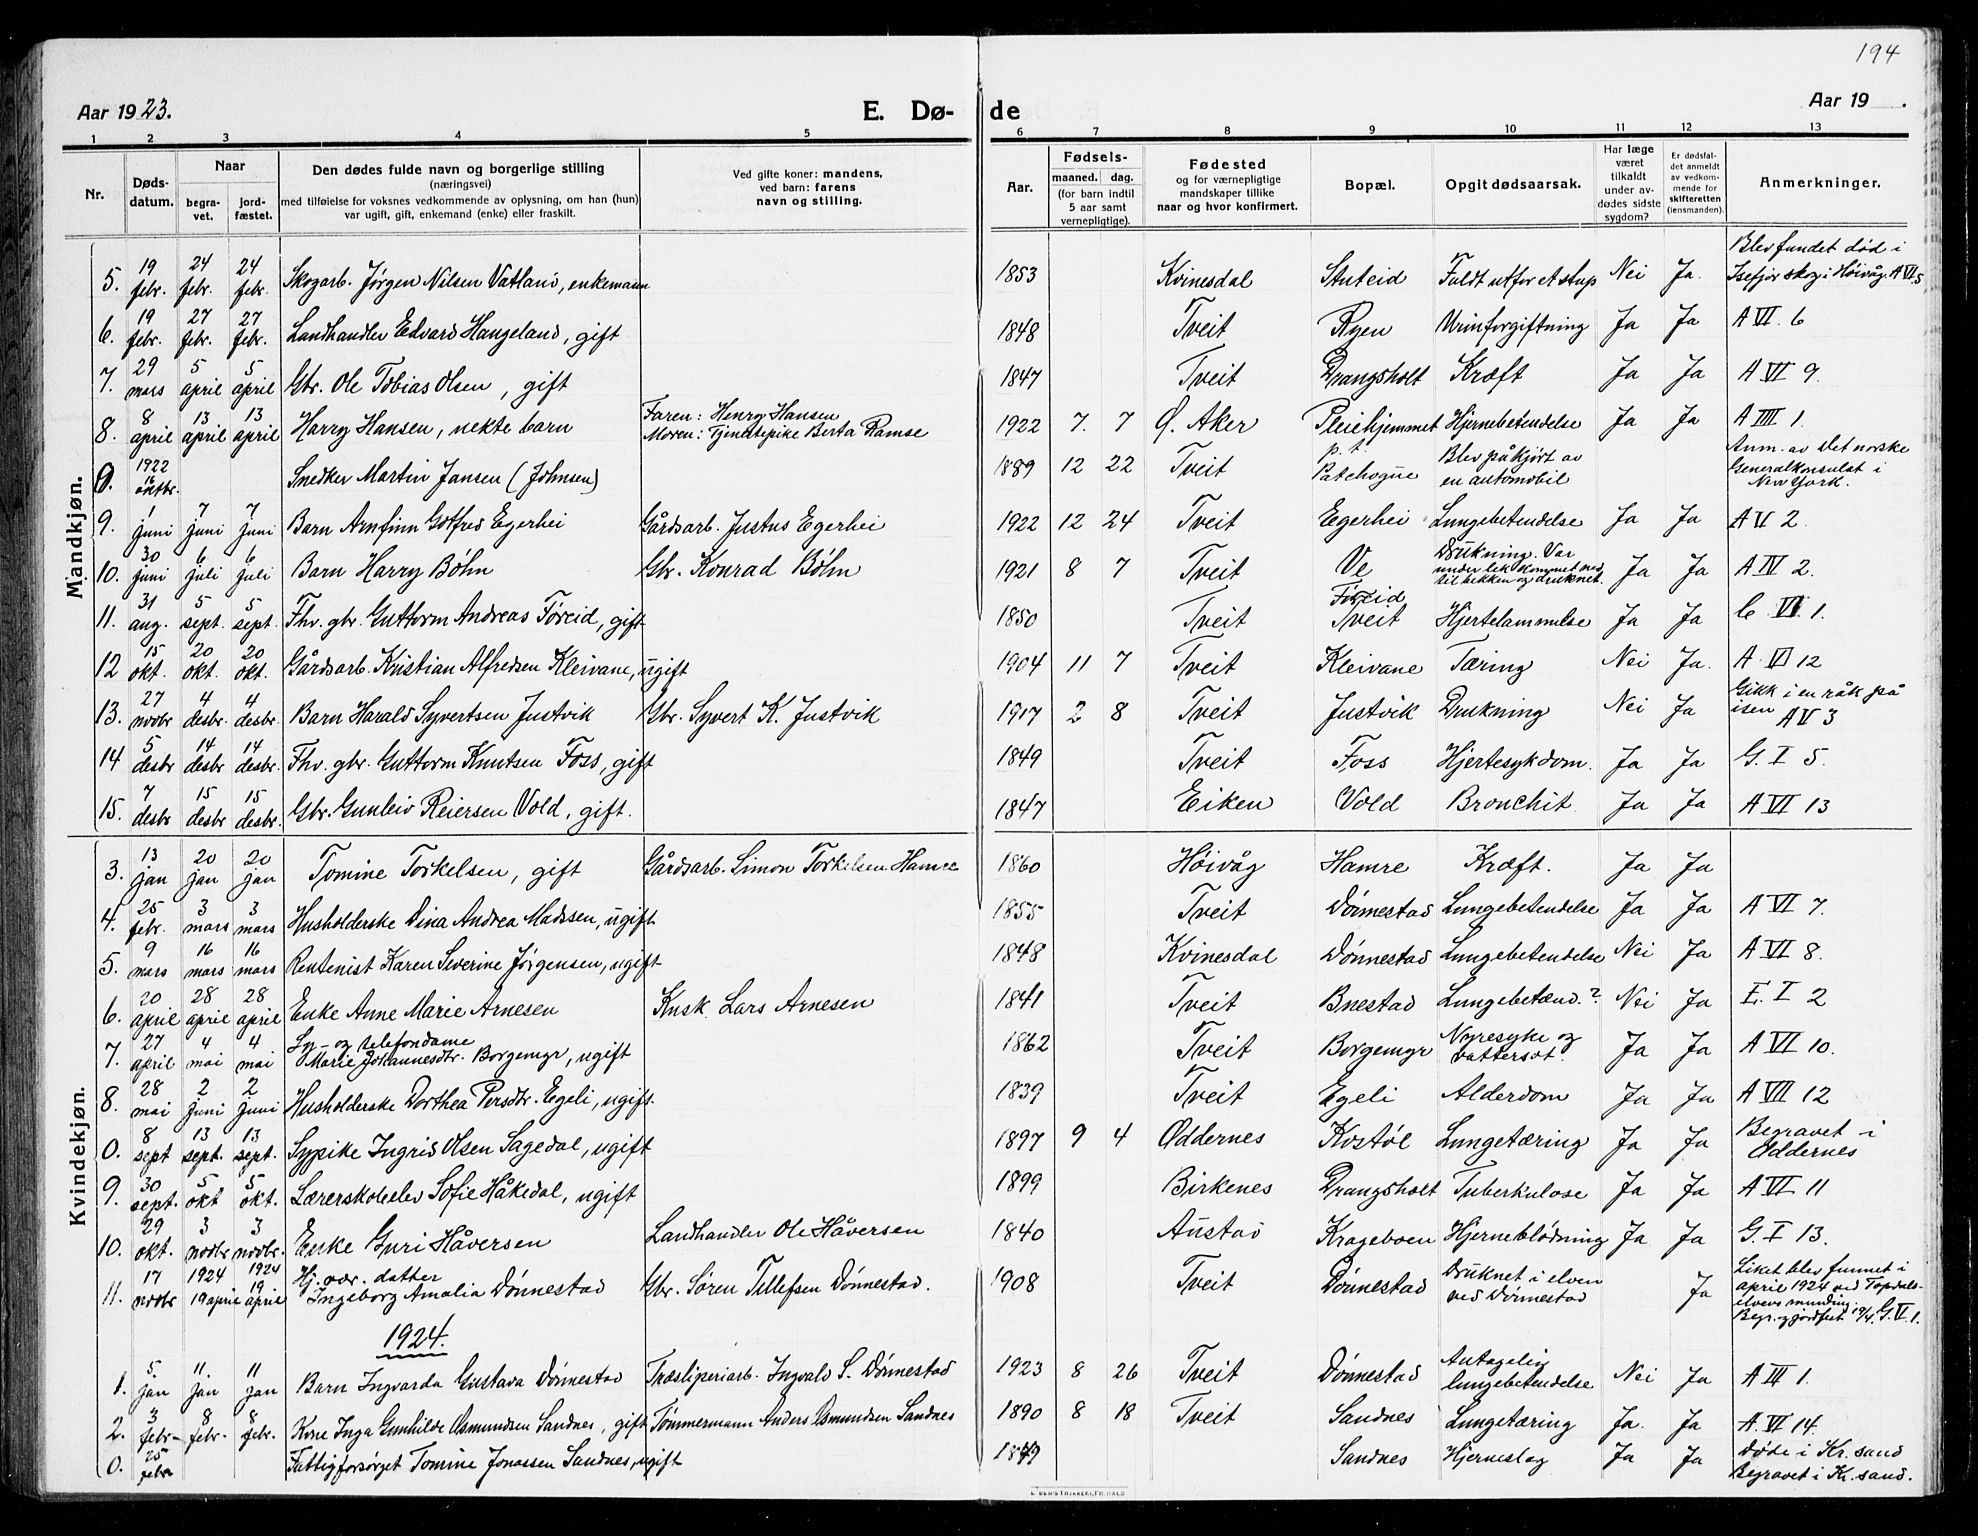 194
Aar 1923. E. Dø- de Aar 19 .
1 2 3 4 5 6 7 8 9 10 11 12 13
Nr. Dødsdatum. Naar begravet. jordfæstet. Den dødes fulde navn og borgerlige stilling (næringsvei) med tilføielse for voksnes vedkommende av oplysning, om han (hun) var ugift, gift, enkemand (enke) eller fraskilt. Ved gifte koner: mandens, ved barn: farens navn og stilling. Aar. Fødsels- maaned. dag. (for barn indtil 5 aar samt vernepligtige). Fødested og for værnepligtige mandskaper tillike naar og hvor konfirmert. Bopæl. Opgit dødsaarsak. Har læge været tilkaldt under avdødes sidste sygdom? Er dødsfaldet anmeldt av vedkommende for skifteretten (lensmanden). Anmerkninger.
Mandkjøn.
5. 19 febr. 24 febr. 24 febr. Skogarb. Jørgen Nilsen Vatland, enkemann 1853 Kvinesdal Stuteid Faldt utfor et stup Nei Ja. Blev fundet død i Isefjör skog i Høivåg. A VI 5
6. 19 febr. 27 febr. 27 febr. Landhandler Edvard Haugeland, gift 1848 Tveit Ryen Urinforgiftning Ja Ja A VI. 6
7. 29 mars 5 april 5 april Gbr. Ole Tobias Olsen, gift 1847 Tveit Drangsholt Kræft Ja Ja A VI 9.
8. 8 april 13 april 13 april Harry Hansen, uekte barn Faren: Henry Hansen Moren: Tjenestepike Berta Ramse 1922 7. 7 Ø. Aker Pleiehjemmet Hjernebetendelse Ja Ja A IIII 1.
0. 1922 16 oktbr. Snedker Martin Jansen (Johnsen) 1889 12 22 Tveit p.t. Patchogue Blev påkjørt av en automobil Anm. av Det norske Generalkonsulat i New York.
9. 1 juni 7 juni 7 juni Barn Arnfinn Gotfred Egerhei Gårdsarb. Justus Egerhei 1922 12 24 Tveit Egerhei Lungebetendelse Ja Ja A V 2.
10. 30 juni 6 juli 6 juli Barn Harry Bøhn Gbr. Konrad Bøhn 1921 8 7 Tveit Ve Drukning. Var under lek kommet ned til bekken og druknet. Ja Ja A IV 2.
11. 31 aug. 5 sept. 5 sept. Fhv. gbr. Guttorm Andreas Føreid, gift 1850 Tveit Føreid Tveit Hjertelammelse Ja Ja C VI. 1.
12 15 okt. 20 okt. 20 okt. Gårdsarb. Kristian Alfredsen Kleivane, ugift 1904 11 7 Tveit Kleivane Tæring Nei Ja. A VI 12
13. 27 novbr 4 desbr. 4 desbr. Barn Harald Syvertsen Justvik Gbr. Syvert K. Justvik 1917 2 8 Tveit Justvik Drukning Nei Ja Gikk i en råk på isen A V 3
14 5 desbr 14 desbr 14 desbr. Fhv. gbr. Guttorm Knutsen Foss, gift 1849 Tveit Foss Hjertesykdom. Ja Ja G. I 5.
15. 7 desbr 15 desbr 15 desbr. Gbr. Gunleiv Reiersen Vold, gift. 1847 Eiken Vold Bronchit. Ja Ja A VI 13
Kvindekjøn.
3. 13 jan 20 jan 20 jan Tomine Torkelsen, gift Gårdsarb. Simon Torkelsen Hamre 1860 Høivåg Hamre Kræft. Ja Ja
4. 25 febr. 3 mars 3 mars Husholderske Dina Andrea Madssen, ugift 1855 Tveit Dønnestad Lungebetendelse Ja Ja A VI 7.
5. 9 mars 16 mars 16 mars Rentenist Karen Severine Jørgensen, ugift 1848 Kvinesdal Dønnestad Lungebetendelse Nei Ja A VI 8.
6. 20 april 28 april 28 april Enke Anne Marie Arnesen Kusk. Lars Arnesen 1841 Tveit Bnestad Lungebetænd.? Nei Ja E. I 2
7. 27 april 4 mai 4 mai Sy- og telefondame Marie Johannesdtr. Borgemyr, ugift 1862 Tveit Borgemyr Nyresyke og vattersot. Ja Ja A VI 10.
8. 28 mai 2 juni 2 juni Husholderske Dorthea Persdtr. Egeli, ugift. 1839 Tveit Egeli Alderdom Ja Ja A VII 12
0. 8 sept 13 sept. 13 sept. Sypike Ingrid Olsen Sagedal, ugift 1897 9 4 Oddernes Kostøl Lungetæring Ja Ja Begravet i Oddernes
9. 30 sept. 5 okt 5 okt. Lærerskoleelev Sofie Håkedal, ugift 1899 Birkenes Drangsholt Tuberkulose Ja Ja A VI 11
10. 29 okt. 3 novbr 3 novbr. Enke Guri Håversen Landhandler Ole Håversen 1840 Austad Krageboen Hjerneblødning Ja Ja G. I 13.
11. 17 novbr 1924 19 april 1924 19 april Hj. vær. datter Ingeborg Amalia Dønnestad Gbr. Søren Tellefsen Dønnestad. 1908 Tveit Dønnestad Druknet i elven ved Dønnestad Ja Liket blev funnet i april 1924 ved Topdalselvens munding. Begr. og jordfest 19/4. G. V. 1.
1924.
1. 5 jan 11. jan 11 jan Barn Ingvarda Gustava Dønnestad Træsliperiarb. Ingvald S. Dønnestad 1923 8 26 Tveit Dønnestad Antagelig lungebetendelse Nei Ja A III 1.
2. 3 febr. 8 febr. 8 febr. Kone Inga Gunhilde Osmundsen Sandnes, gift Tømmermann Anders Osmundsen Sandnes 1890 8 18 Tveit Sandnes Lungetæring Ja. Ja A. VI 14.
0. 25 febr Fattigforsørget Tomine Jonassen Sandnes, ugift 1849 Sandnes Hjerneslag Ja Ja Døde i Kr. sand Begravet i Kr. sand.